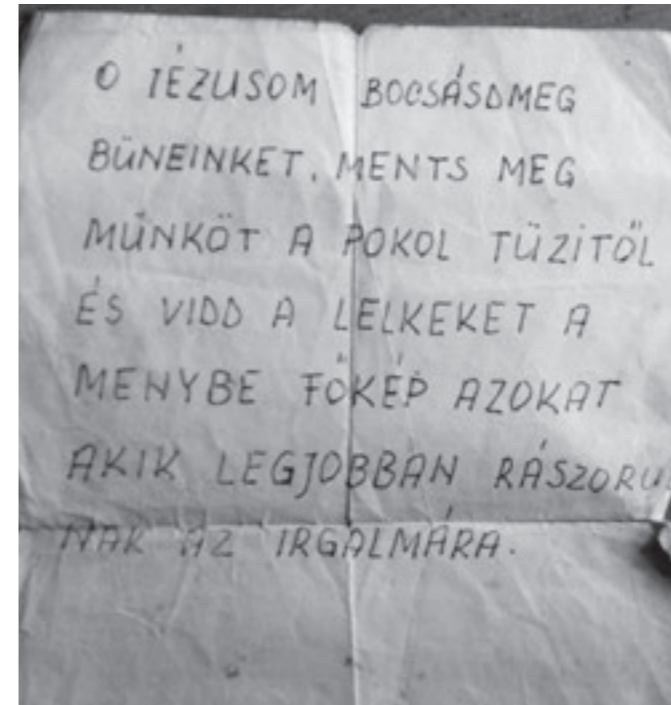 O IÉZUSOM BOCSÁSDMEG
BÜNEINKET. MENTS MEG
MÜNKÖT A POKOL TÜZITŐL
ÉS VIDD A LELKEKET A
MENYBE FŐKÉP AZOKAT
AKIK LEGJOBBAN RÁSZORUL
NAK AZ IRGALMÁRA.